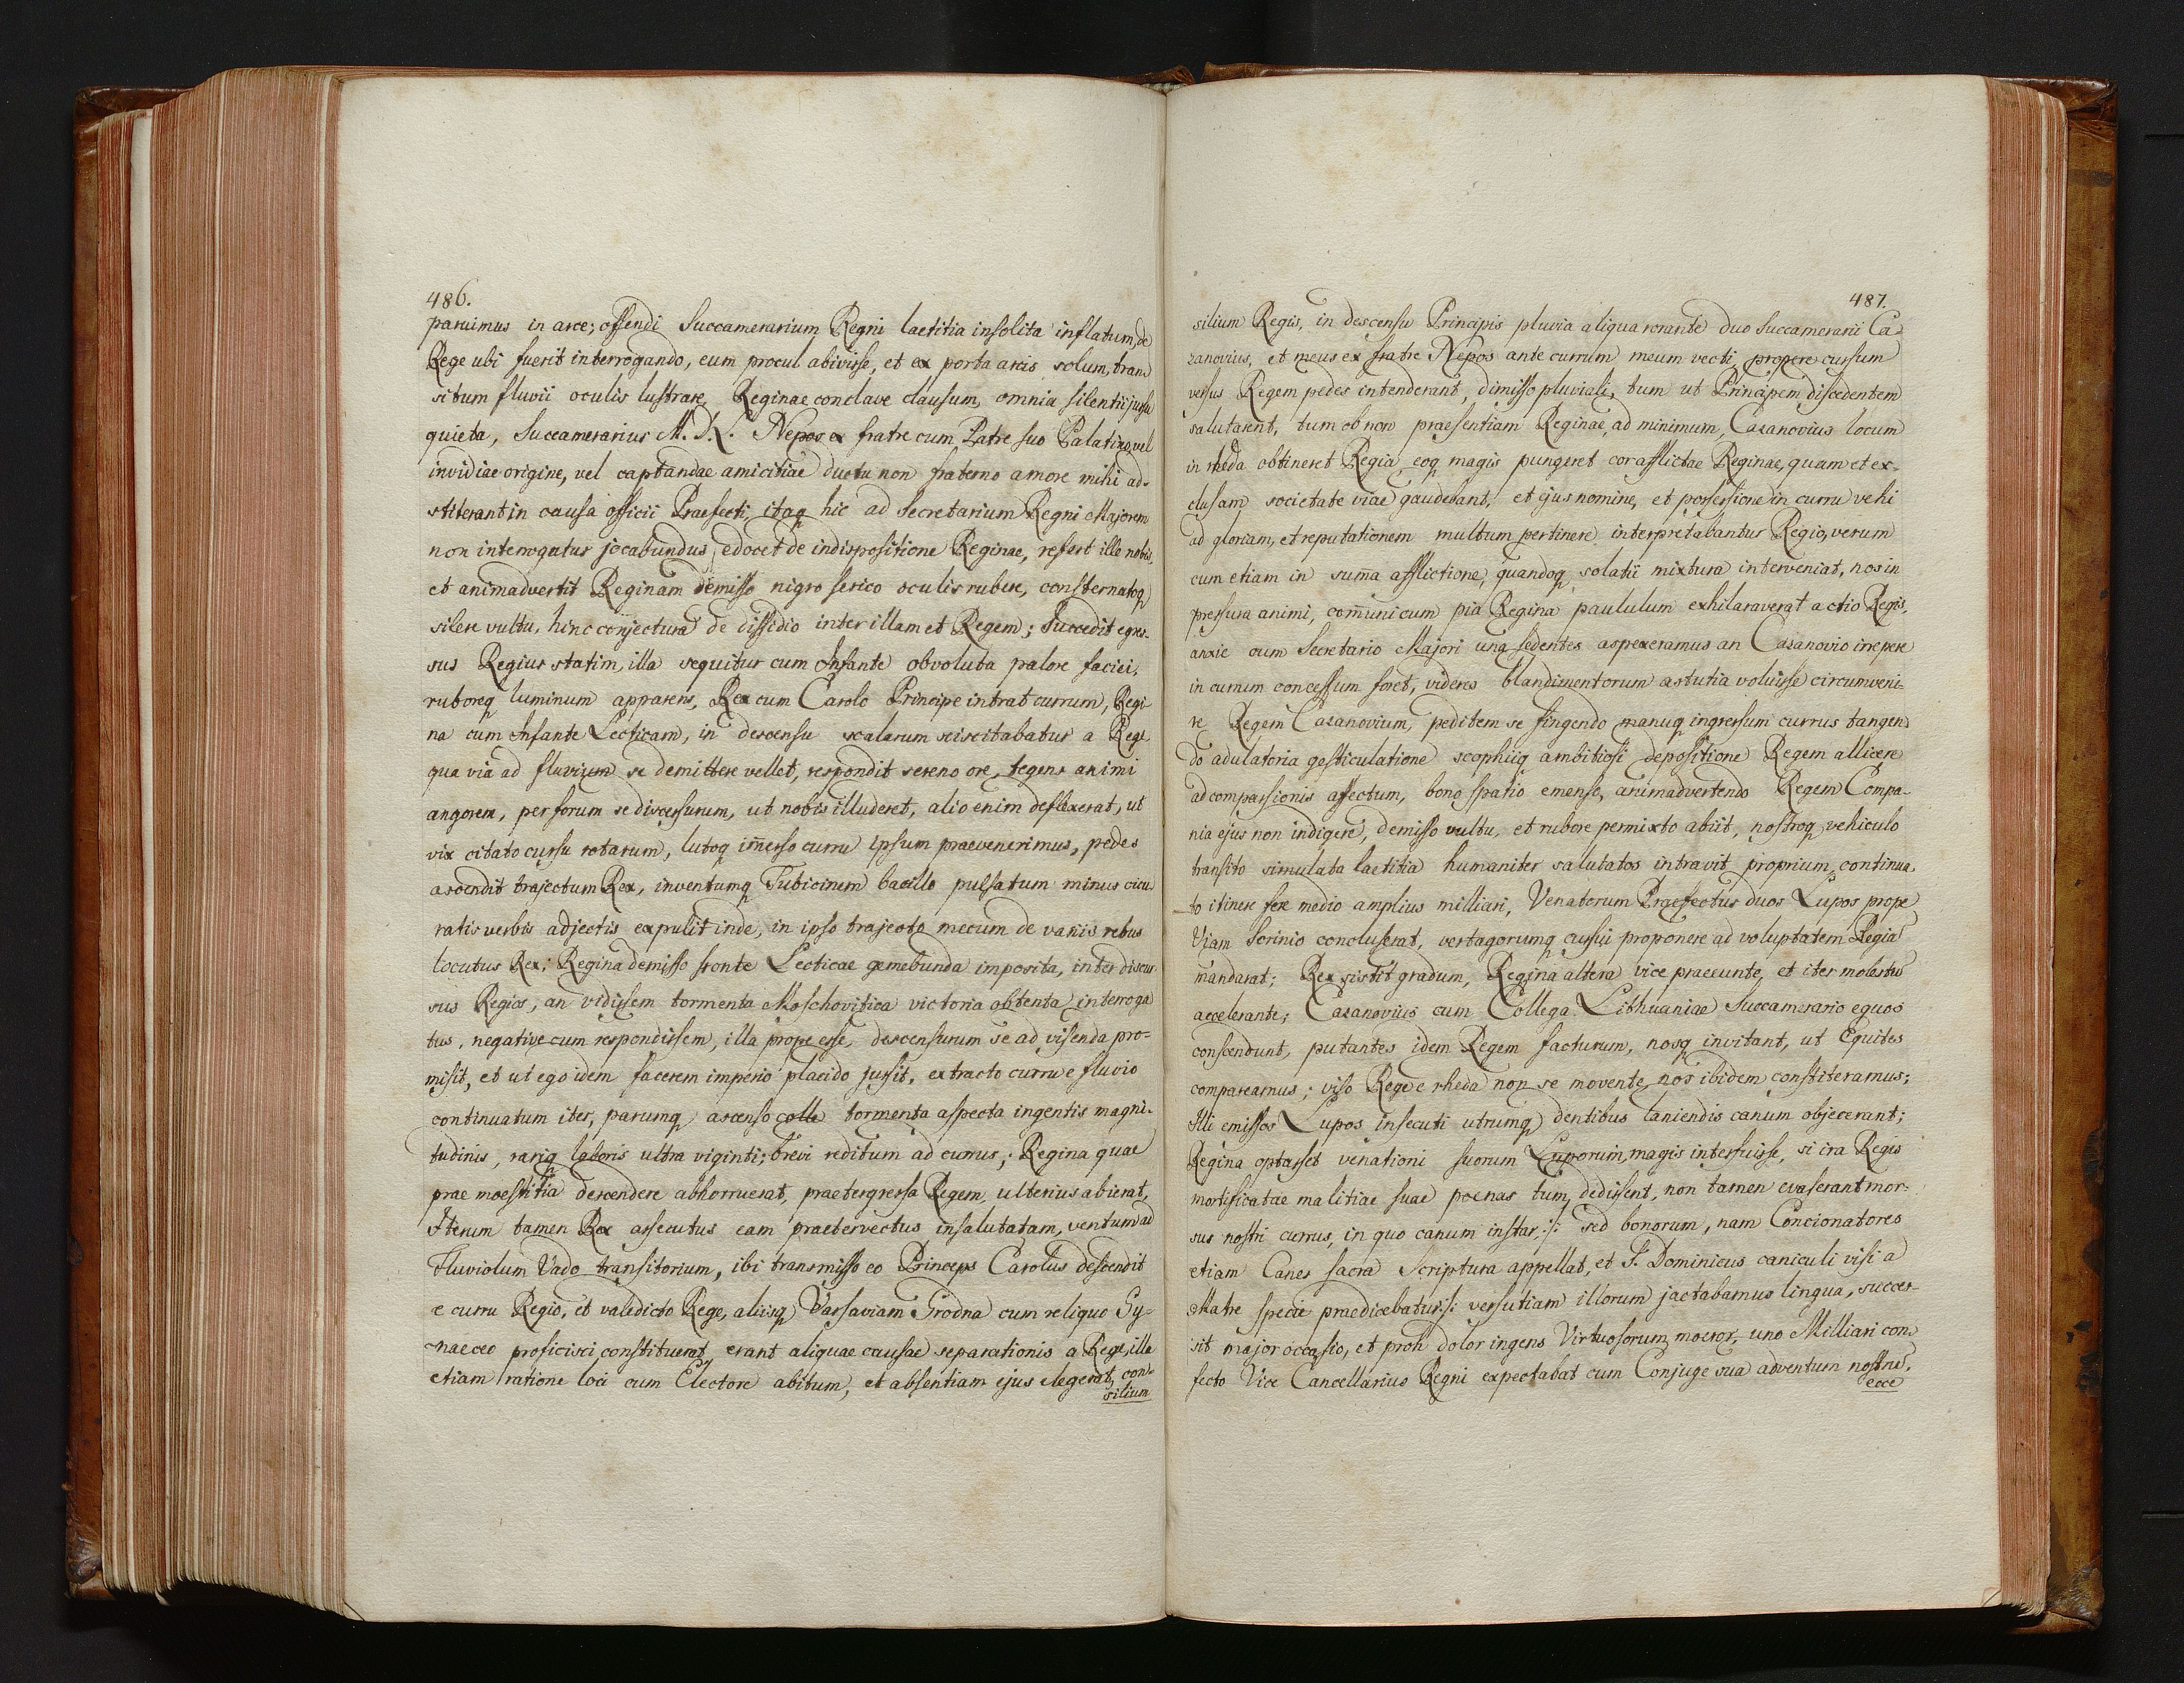 486.
paruimus in arce; offendi Succamerarium Regni laetitia insolita inflatum, de
Rege ubi fuerit interrogando, eum procul abivisse, et ex porta arcis solum, tran-
situm fluvii oculis lustrare, Reginae conclave clausum, omnia silentii jussu
quieta, Succamerarius M. D. L. Nepos ex fratre cum Patre suo Palatino, vel
invidiae origine, vel captandae amicitiae ductu non fraterno amore mihi ad-
stiterant in causa officii Praefecti, itaq hic ad Secretarium Regni Majorem
non interrogatus jocabundus, edocet de indispositione Reginae, refert ille nobis,
et animadvertit Reginam demisso nigro serico oculis rubere, consternatoq
silere vultu, hinc conjectura de dissidio inter illam et Regem; Succedit egres-
sus Regius statim, illa sequitur cum Infante obvoluta palore faciei,
ruboreq luminum apparens, Rex cum Carolo Principe intrat currum, Regi-
na cum Infante Lecticam, in descensu scalarum sciscitabatur a Rege
qua via ad fluvium se demittere vellet, respondit sereno ore, tegens animi
angorem, per forum se discessurum, ut nobis illuderet, alio enim deflexerat, ut
vix citato cursu rotarum, lutoq imerso curru ipsum praevenerimus, pedes
ascendit trajectum Rex, inventumq Tubicinem bacillo pulsatum minus cicu-
ratis verbis adjectis expulit inde, in ipso trajecto mecum de variis rebus
locutus Rex; Regina demisso fronte Lecticae gemebunda imposita, inter discur-
sus Regios, an vidissem tormenta Moschovitica victoria obtenta interroga
tus, negative cum respondissem, illa prope esse, descensurum se ad visenda pro-
misit, et ut ego idem facerem imperio placido jussit, extracto curru e fluvio
continuatum iter, parumq ascenso colle tormenta aspecta ingentis magni-
tudinis, rariq laboris ultra viginti; brevi reditum ad currus; Regina quae
prae moestitia descendere abhorruerat, praetergressa Regem, ulterius abierat,
Iterum tamen Rex assecutus eam praetervectus insalutatam, ventum ad
Fluviolum Vado transitorium, ibi transmisso eo Princeps Carolus descendit
e curru Regio, et valedicto Rege, aliisq Varsaviam Grodna cum reliquo Gy-
naeceo proficisci constituerat, erant aliquae causae separationis a Rege, illa
etiam ratione loci cum Electore abitum, et absentiam ejus elegerat, con-
silium
487.
silium Regis, in descensu Principis pluvia aliqua rorante duo Succamerarii Ca-
zanovius, et meus ex fratre Nepos ante currum meum vecti, propere cursum
versus Regem pedes intenderant, dimisso pluviali, tum ut Principem discedentem
salutarent, tum ob non praesentiam Reginae, ad minimum, Cazanovius locum
in rheda obtineret Regia, eoq magis pungeret cor afflictae Reginae, quam et ex-
clusam societate viae gaudebant, et ejus nomine, et possessione in curru vehi
ad gloriam, et reputationem multum pertinere interpretabantur Regio, verum
cum etiam in suma afflictione, quandoq solatii mixtura interveniat, nos in
pressura animi, comunicum pia Regina paululum exhilaraverat actio Regis,
anxie cum Secretario Majori una sedentes aspexeramus an Cazanovio irrepere
in currum concessum foret, videres blandimentorum astutia voluisse circumveni-
re Regem Cazanovium, peditem se fingendo manuq ingressum currus tangen
do adulatoria gesticulatione scophiiq ambitiosi depositione Regem allicere
ad compassionis affectum, bono spatio emenso, animadvertendo Regem Compa-
nia ejus non indigere, demisso vultu, et rubore permixto abiit, nostroq vehiculo
transito simulata laetitia humaniter salutatos intravit proprium, continua-
to itinere fere medio amplius milliari, Venatorum Praefectus duos Lupos prope
Viam Scrinio concluserat, vertagorumq cursui proponere ad voluptatem Regia
mandarat; Rex sistit gradum, Regina altera vice praeeunte, et iter molestu
accelerante; Cazanovius cum Collega Lithuaniae Succamerario equos
conscendunt, putantes idem Regem facturum, nosq invitant, ut Equites
compareamus; viso Rege e rheda non se movente, nos ibidem constiteramus;
Illi emissos Lupos insecuti utrumq dentibus laniendis canum objecerant;
Regina optasset venationi suorum Luporum magis interfuisse, si ira Regis
mortificatae malitiae suae poenas tum dedissent, non tamen evaserant mor-
sus nostri currus, in quo canum instar :/: sed bonorum, nam Concionatores
etiam Canes sacra Scriptura appellat, et S. Dominicus caniculi visi a
Matre specie praedicebatur :/: versutiam illorum jactabamus lingua, succes-
sit major occasio, et proh dolor ingens Virtuosorum moeror, uno Milliari con-
fecto Vice Cancellarius Regni expectabat cum Conjuge sua adventum nostru,
ecce